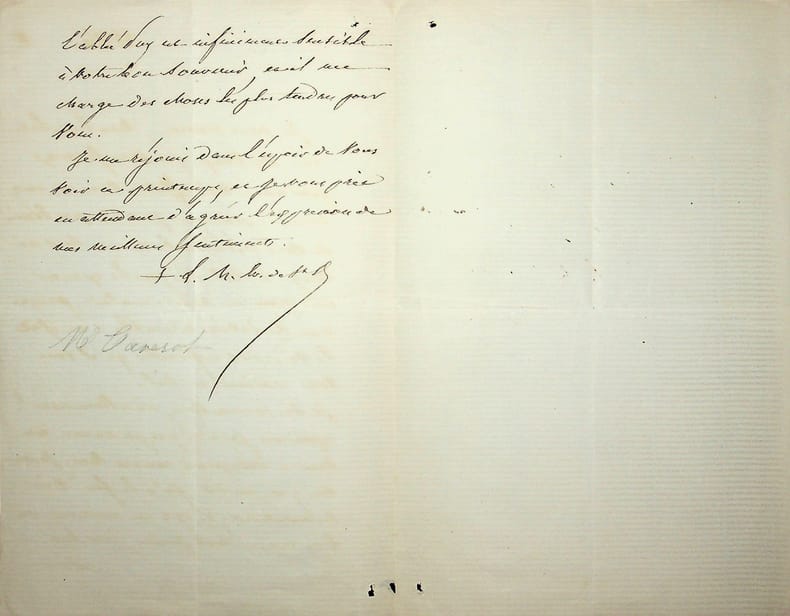 L'abbé Duq est infiniment sensible
à votre bon souvenir, et il me
charge des choses les plus tendres pour
vous.
Je me réjouis dans l'espoir de vous
voir ce printemps, et je vous prie
en attendant d'agréer l'expression de
mes meilleurs sentiments.
Mgr